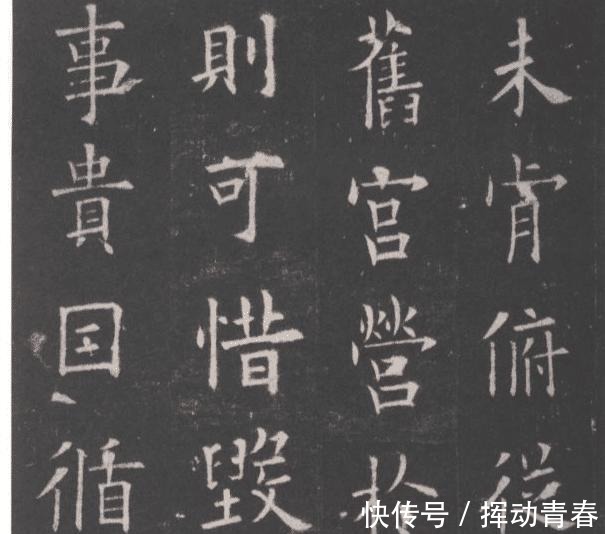 未肯俯從
舊宫營於
則可惜毀
事貴因循
快传号 / 挥动青春